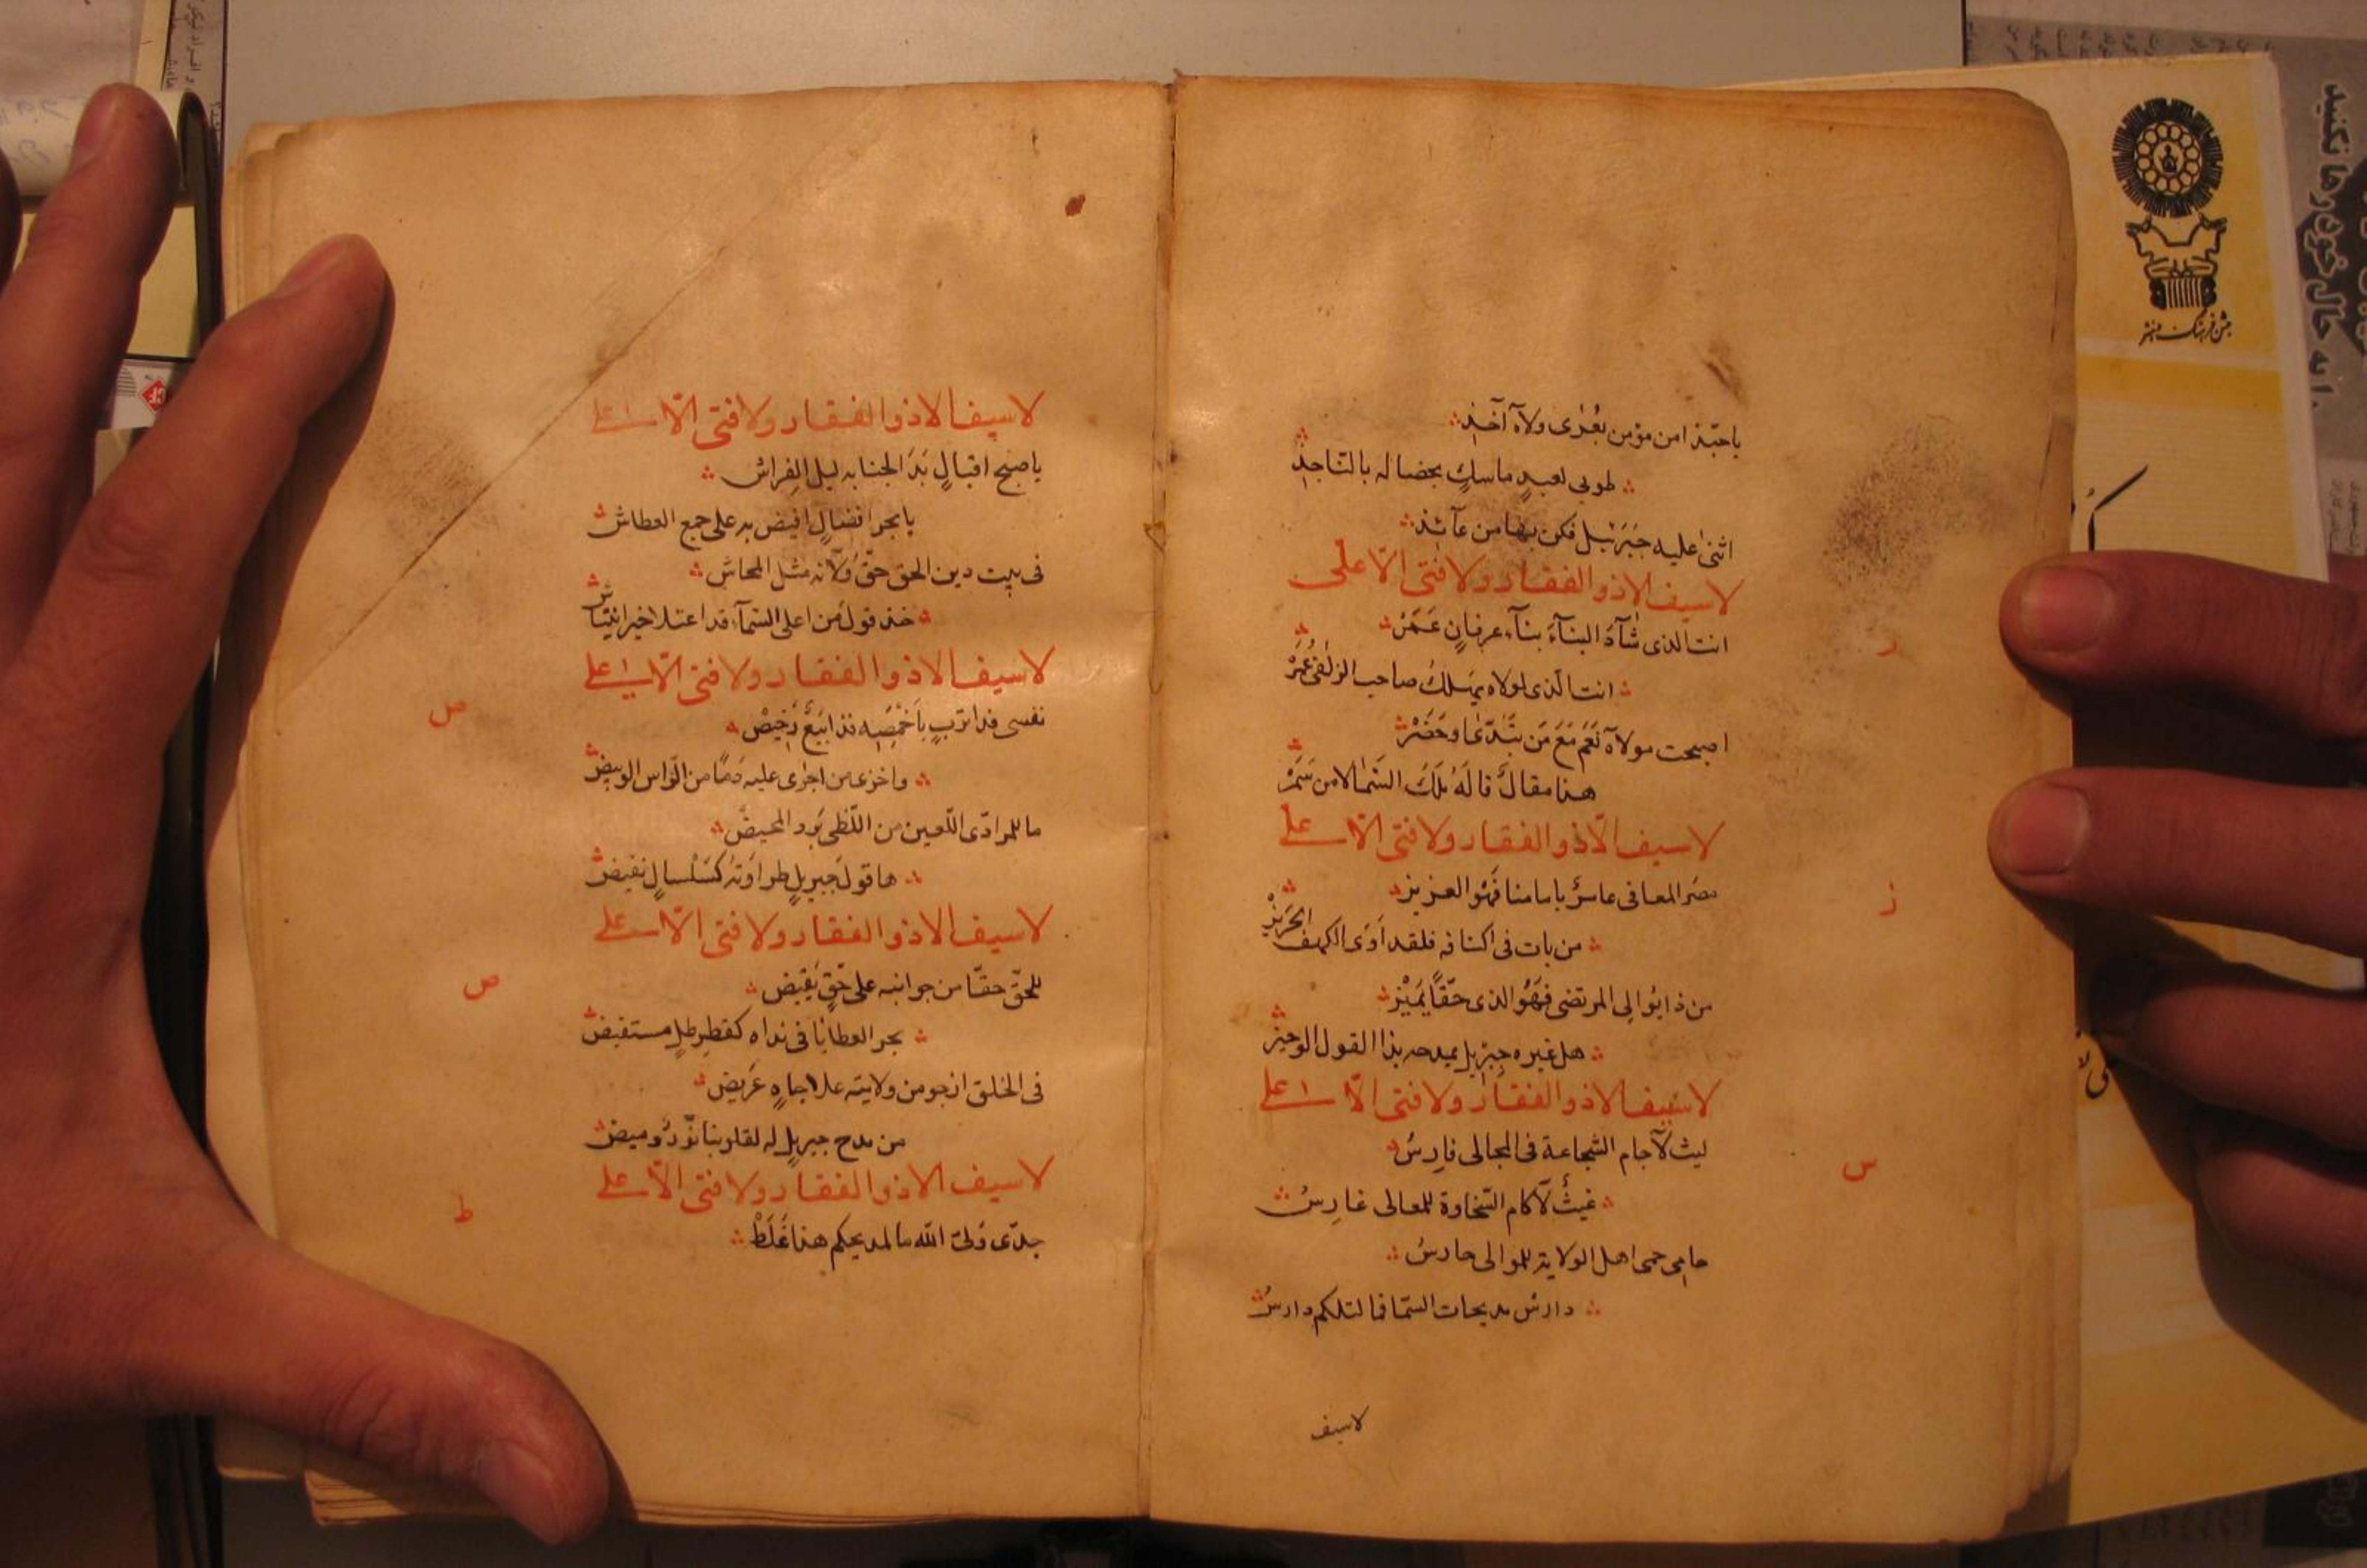 يا حبّذا من مؤمن بعُرٰى ولاه آخذ
طوبى لعبدٍ ماسكٍ بخصاله بالنّاجذ
اثنىٰ عليه جَبرَئيل فكن بها من عآئذ
لا سيف الا ذو الفقار ولا فتى الّا على
ر
انت الذى شآدَ البنآءَ بنآء عرفانٍ عَمَرْ
انت الّذى لولاه يهلكُ صاحب الزلفى عُمَرْ
اصبحت مولاه نَعَم مَعَ مَن تَبَدّىٰ او حَضَرْ
هذا مقالٌ قالَهُ مَلَكُ السَّمٰا لا من سَمَرْ
لا سيف الّا ذو الفقار ولا فتى الّا على
ز
مصر المعافى عاسرٌ بامامنا فَهُو العزيز
من بات فى اكنافه فلقد أوَى الكهف الحَريز
من ذا يُوالى المرتضى فَهُو الذى حَقّاً يَميْز
هل غيره جِبْريل يمدحه بذا القول الوجيز
لا سيف الا ذو الفقار ولا فتى الّا على
س
ليث لآجام الشجاعة فى المجالى فارِسُ
غيثٌ لآكام السّخاوة للمعالى غارِسُ
حامى حمى اهل الولاية للموالى حارسُ
دارسُ مديحات السّما فما لتلكم دارسُ
لاسيف
لا سيف الا ذو الفقار ولا فتى الّا على
يا صبح اقبالٍ بَدَا لجنابه ليل الفِراش
يا بحر افضالٍ افيض به على جمع العطاش
فى بيت دين الحق حقّ وُلّانه مثل المحاش
خذ قول من اعلى السّمآء قد اعتلا خير انتياش
لا سيف الا ذو الفقار ولا فتى الّا على
ص
نفسى فدا تربٍ بأخمَصِه فذا بَيعٌ رَخيصْ
واخزى من اجرٰى عليه دَمًا من الرّاس الوبيص
ما للمرادّى اللّعين من اللّظى بَرد المحيص
ها قول جبريلٍ طراوَته كسَلْسالٍ نفيض
لا سيف الا ذو الفقار ولا فتى الّا على
ض
للحقّ حقّا من جوانبه على حَقٍّ يَقيض
بحر العطايا فى نداه كقطر طلٍ مستفيض
فى الخلق ارجو من ولايته علا جاهٍ عَريض
من مدح جبريلٍ له لقلوبنا نورٌ وميض
لا سيف الا ذو الفقار ولا فتى الّا على
ط
جدّى وَلىّ الله ما لمديحكم هذا غَلَطْ
جشن فرهنگ و هنر